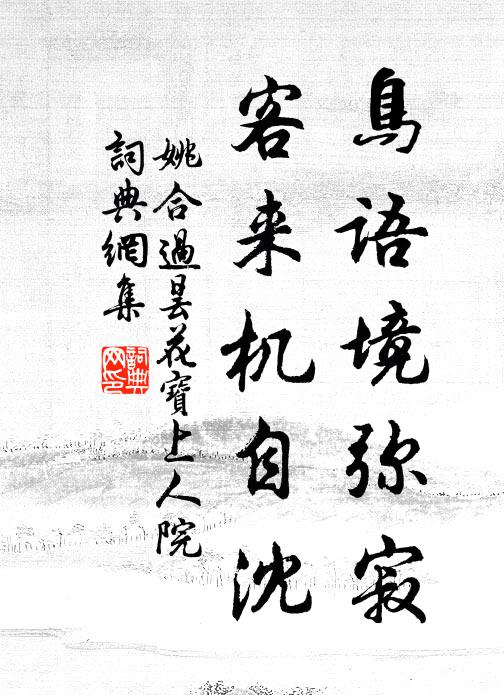 鳥語境弥寂
客来机自沈
姚合過曇花寶上人院
詞典網集
詞典網印